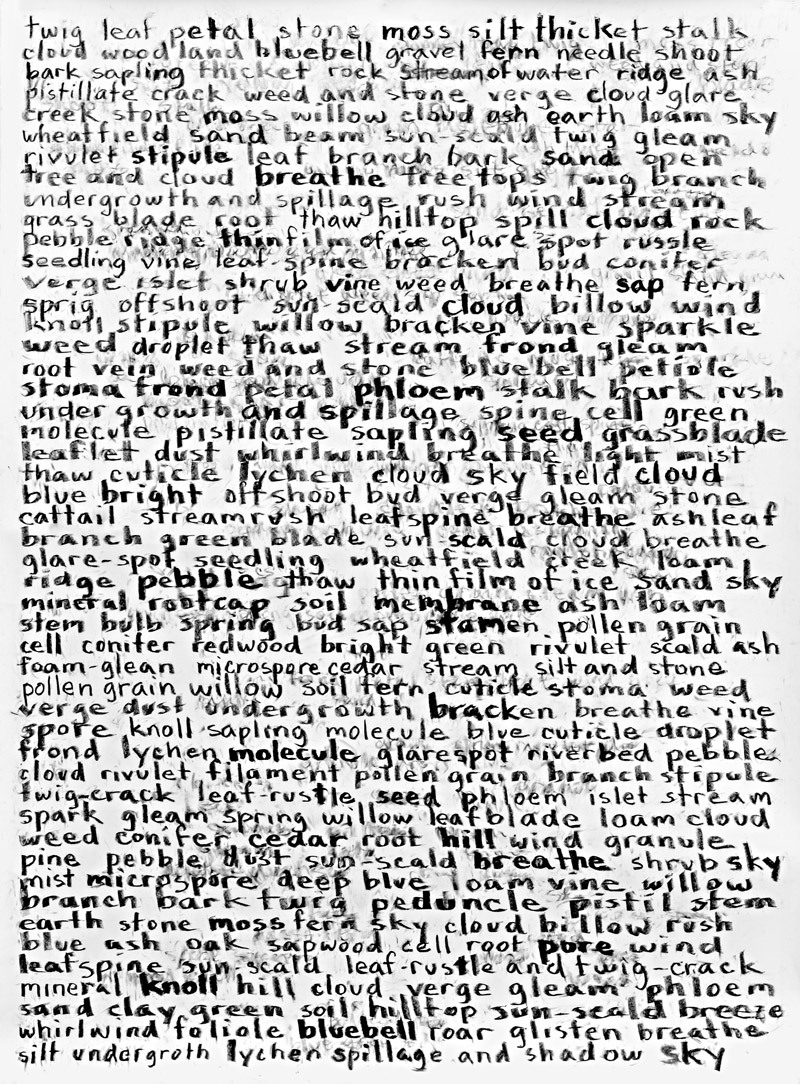 twig leaf petal stone moss silt thicket stalk
cloud wood land bluebell gravel fern needle shoot
bark sapling thicket rock stream of water ridge ash
pistillate crack weed and stone verge cloud glare
creek stone moss willow cloud ash earth loam sky
wheatfield sand beam sun-scald twig gleam
rivulet stipule leaf branch bark sand open
tree and cloud breathe tree tops twig branch
undergrowth and spillage rush wind stream
grass blade root thaw hilltop spill cloud rock
pebble ridge thin film of ice glare spot russle
seedling vine leaf-spine bracken bud conifer
verge islet shrub vine weed breathe sap fern
sprig offshoot sun-scald cloud billow wind
knoll stipule willow bracken vine sparkle
weed droplet thaw stream frond gleam
root vein weed and stone bluebell petiole
stoma frond petal phloem stalk bark rush
under growth and spillage spine cell green
molecule pistillate sapling seed grassblade
leaflet dust whirlwind breathe light mist
thaw cuticle lychen cloud sky field cloud
blue bright offshoot bud verge gleam stone
cattail streamrush leafspine breathe ashleaf
branch green blade sun-scald cloud breathe
glare-spot seedling wheatfield creek loam
ridge pebble thaw thin film of ice sand sky
mineral rootcap soil membrane ash loam
stem bulb spring bud sap stamen pollen grain
cell conifer redwood bright green rivulet scald ash
foam-glean microspore cedar stream silt and stone
pollen grain willow soil fern cuticle stoma weed
verge dust undergrowth bracken breathe vine
spore knoll sapling molecule blue cuticle droplet
frond lychen molecule glarespot riverbed pebble
cloud rivulet filament pollen grain branch stipule
twig-crack leaf-rustle seed phloem islet stream
spark gleam spring willow leafblade loam cloud
weed conifer cedar root hill wind granule
pine pebble dust sun-scald breathe shrub sky
mist microspore deep blue loam vine willow
branch bark twig peduncle pistil stem
earth stone moss fern sky cloud billow rush
blue ash oak sapwood cell root pore wind
leafspine sun-scald leaf-rustle and twig-crack
mineral knoll hill cloud verge gleam phloem
sand clay green soil hilltop sun-scald breeze
whirlwind foliole bluebell roar glisten breathe
silt undergroth lychen spillage and shadow sky